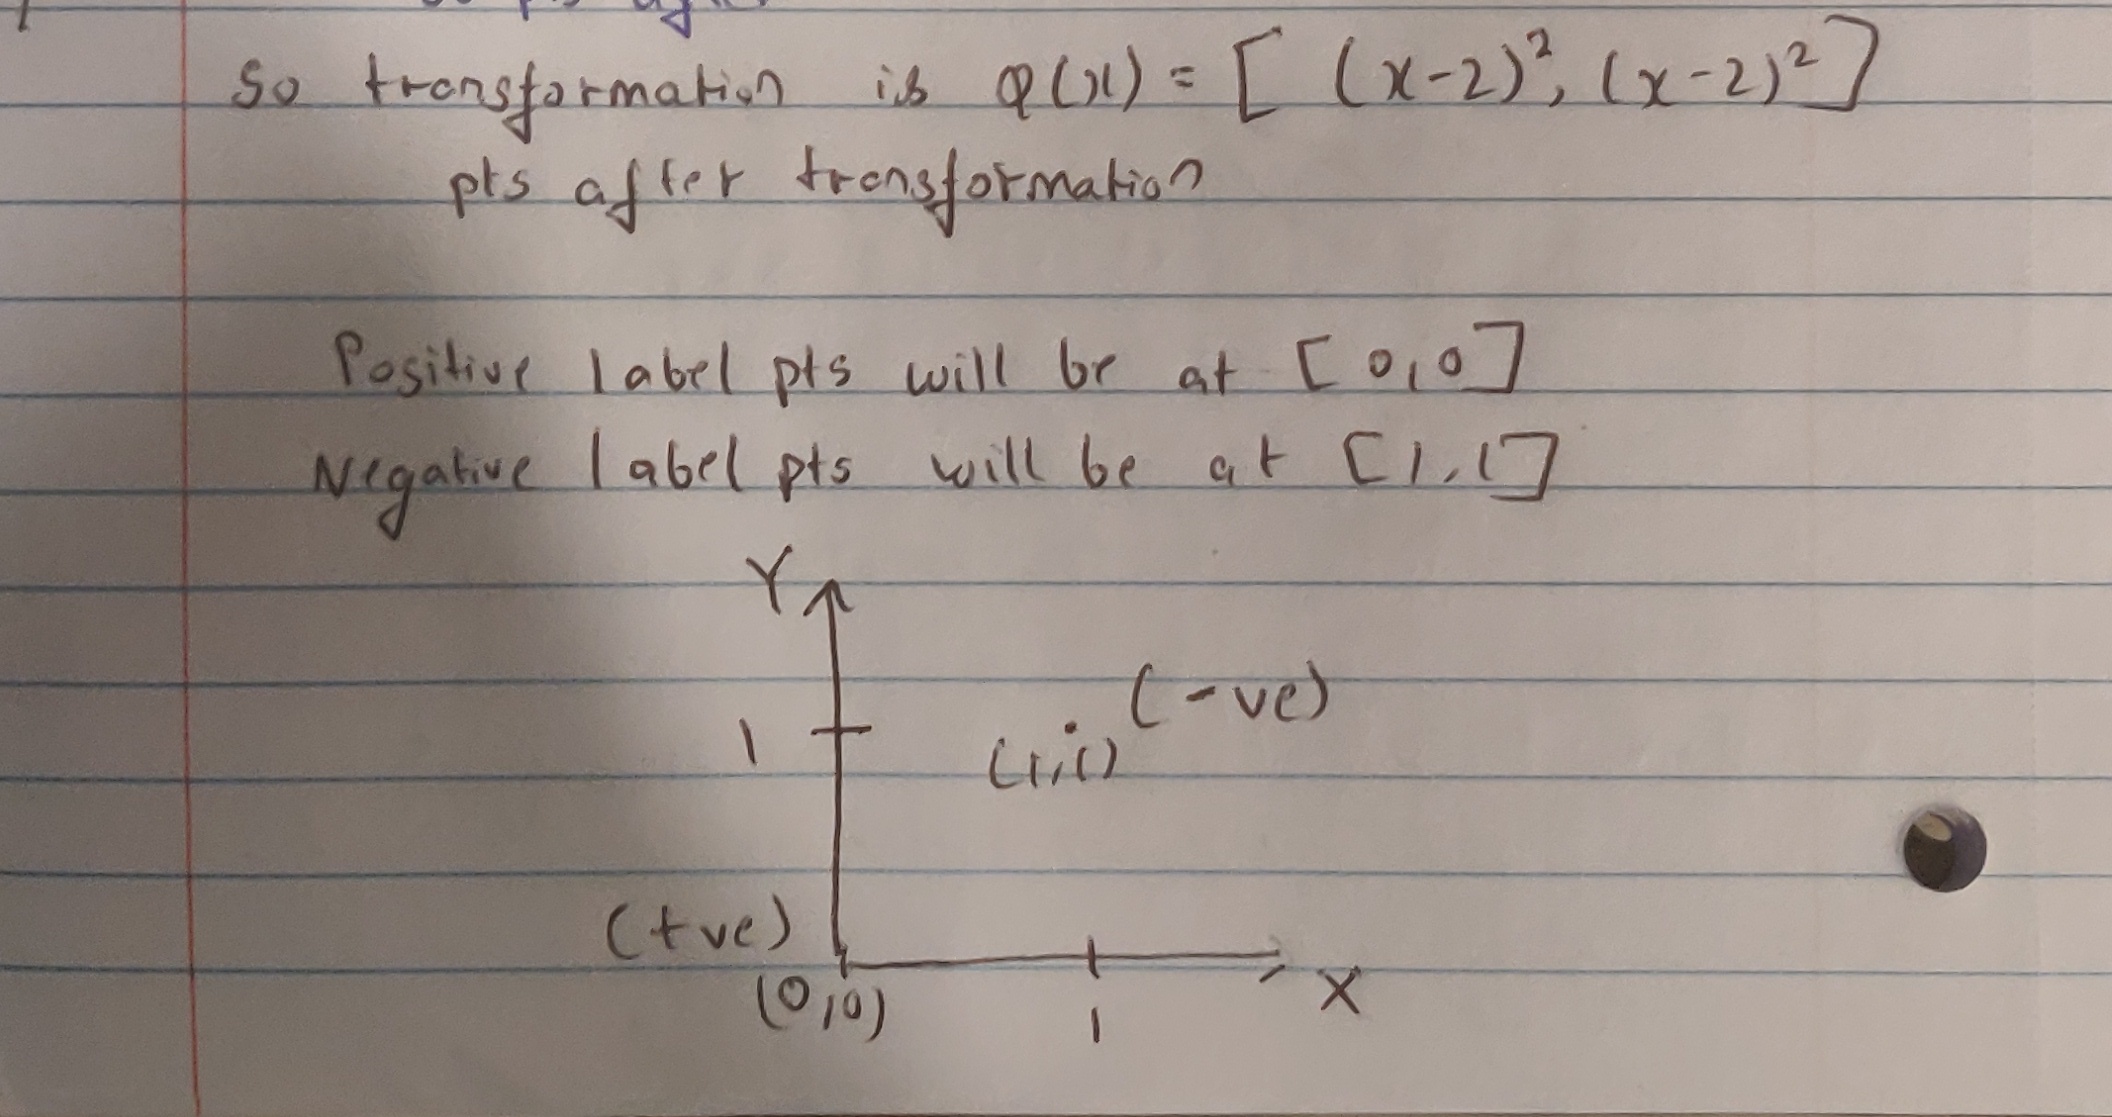 So transformation is φ(x) = [ (x-2)², (x-2)² ]
pts after transformation
Positive label pts will be at [0,0]
Negative label pts will be at [1,1]
Y
(-ve)
1
(1,1)
(+ve)
(0,0)
X
1